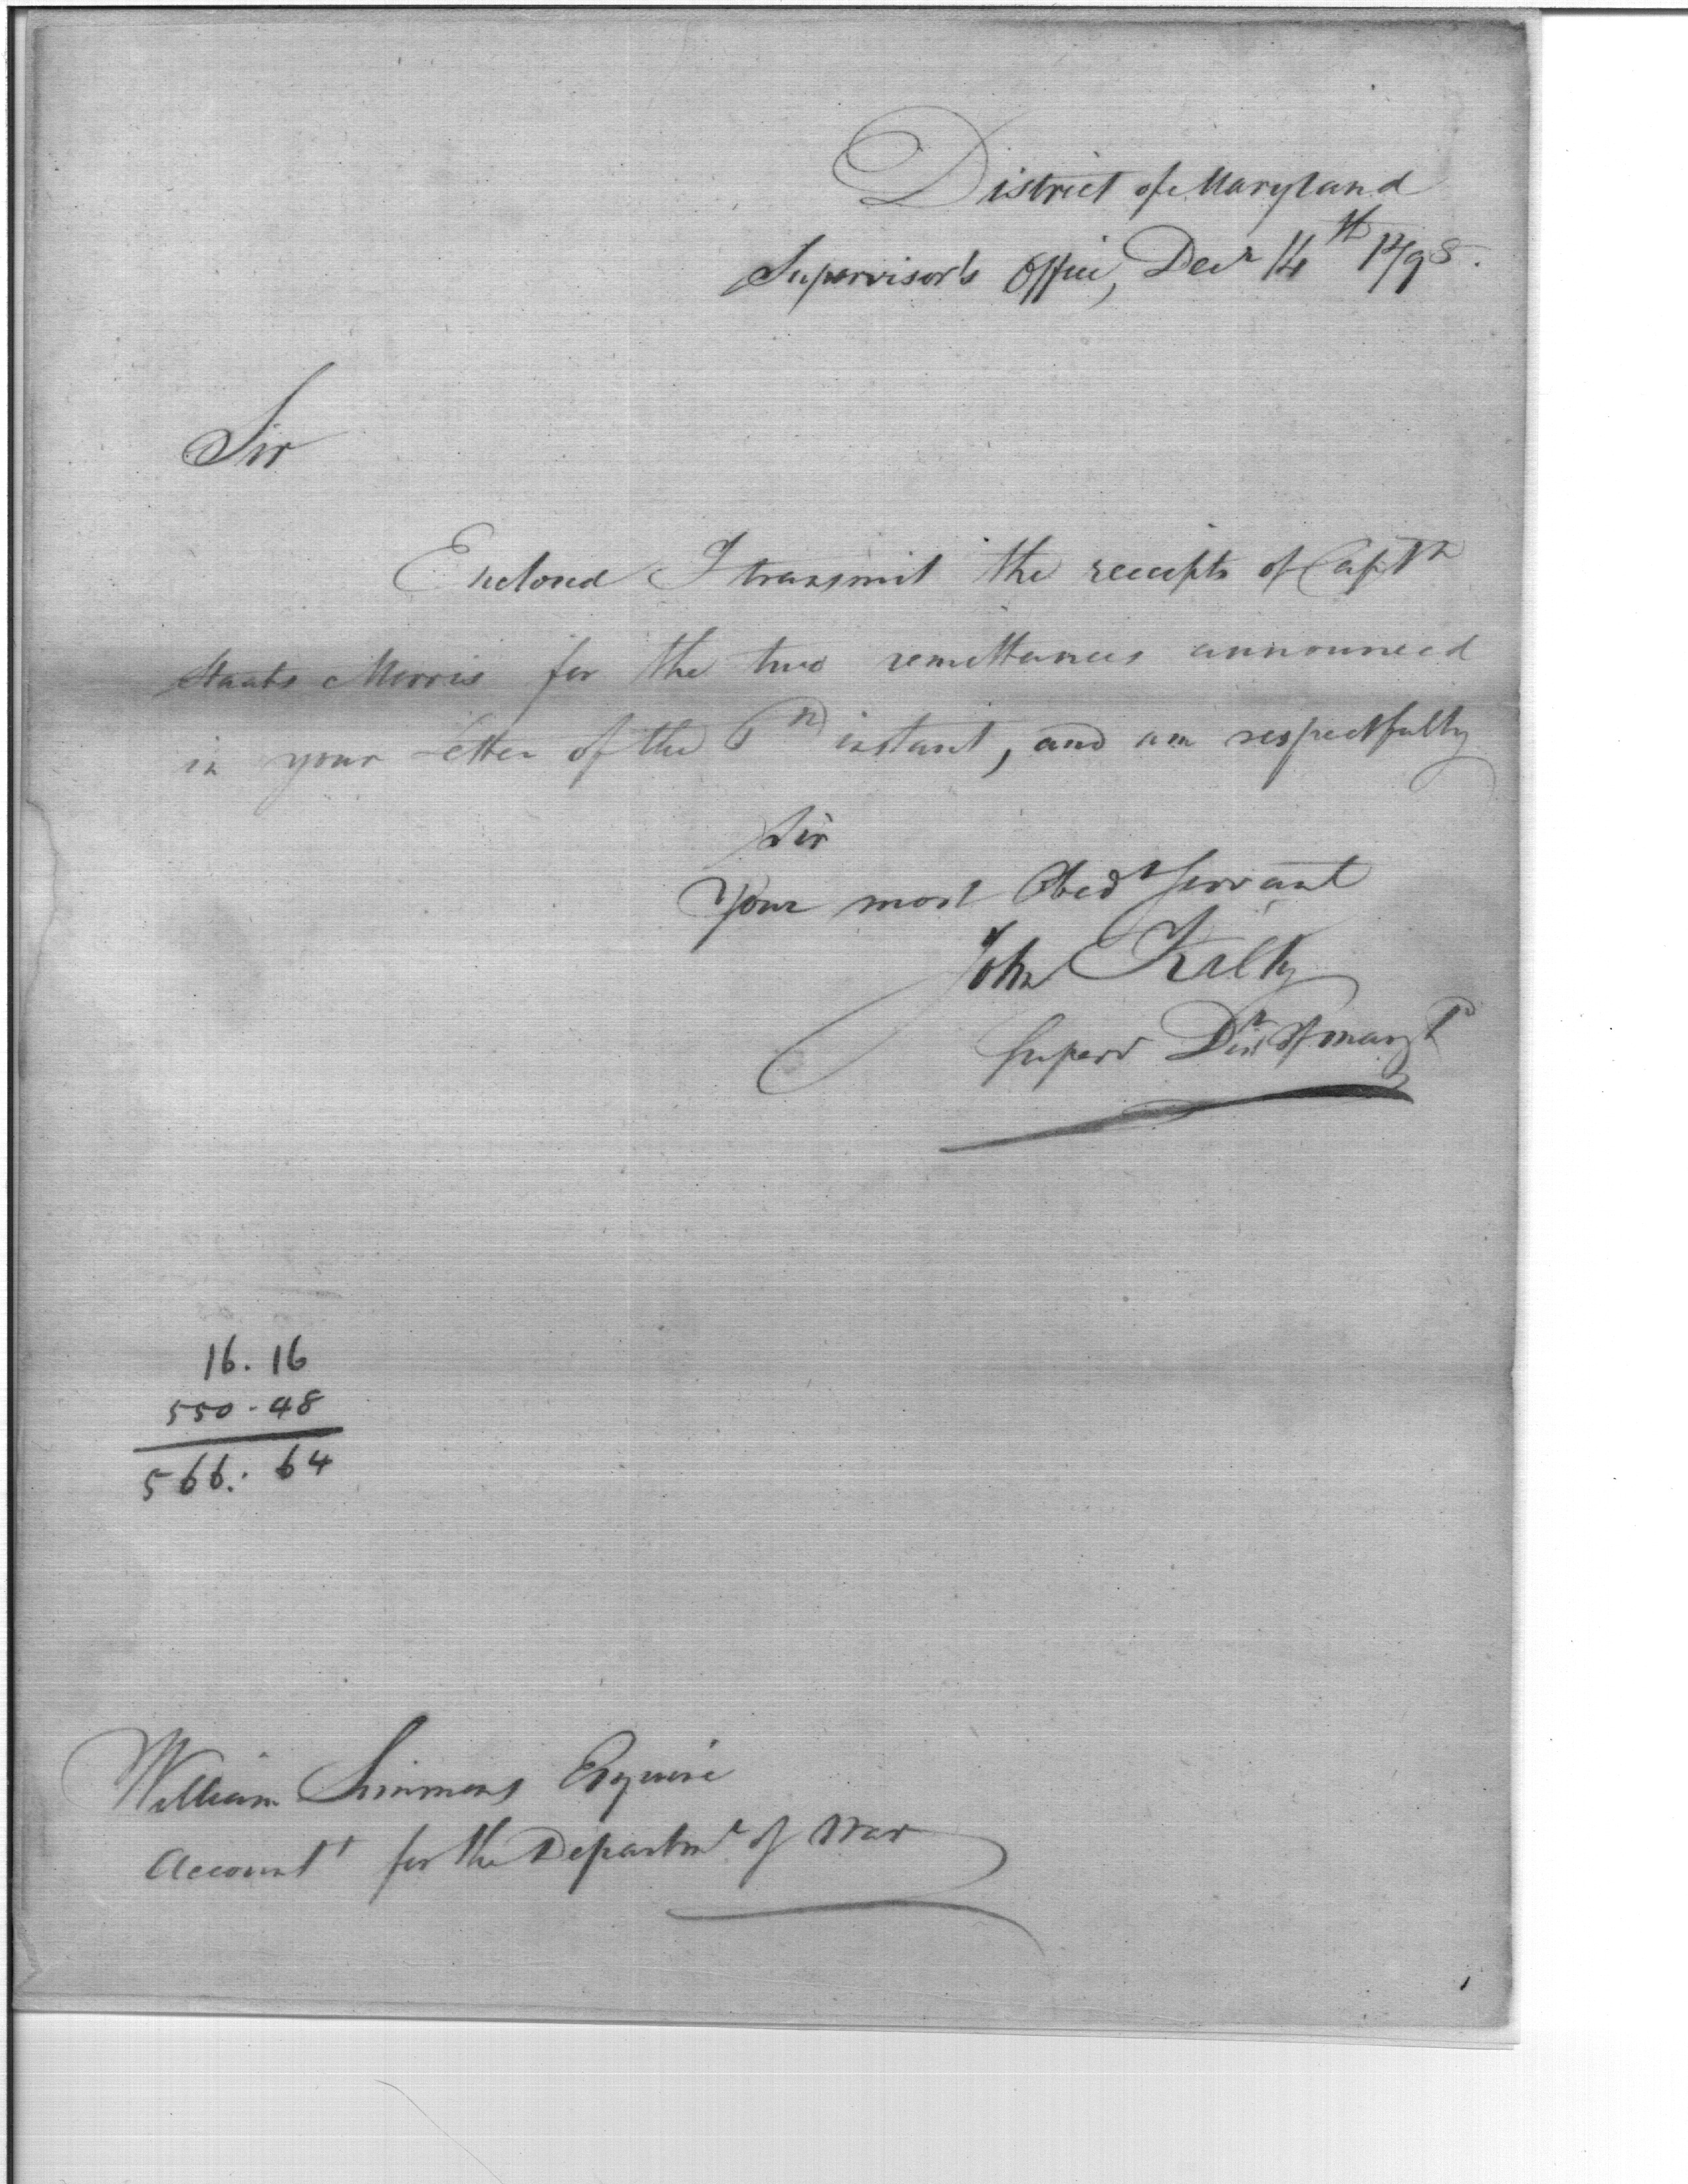 District of Maryland
Supervisor's Office, Decr 14th 1798.
Sir
Enclosed I transmit the receipts of Captn
Staats Morris for the two remittances announced
in your Letter of the instant, and am respectfully
Sir
Your most Obedt Servant
John Kilty
Superr Dist of Maryld
16.16
550.48
566.64
William Simmons Esquire
Accountt for the Departmt of War